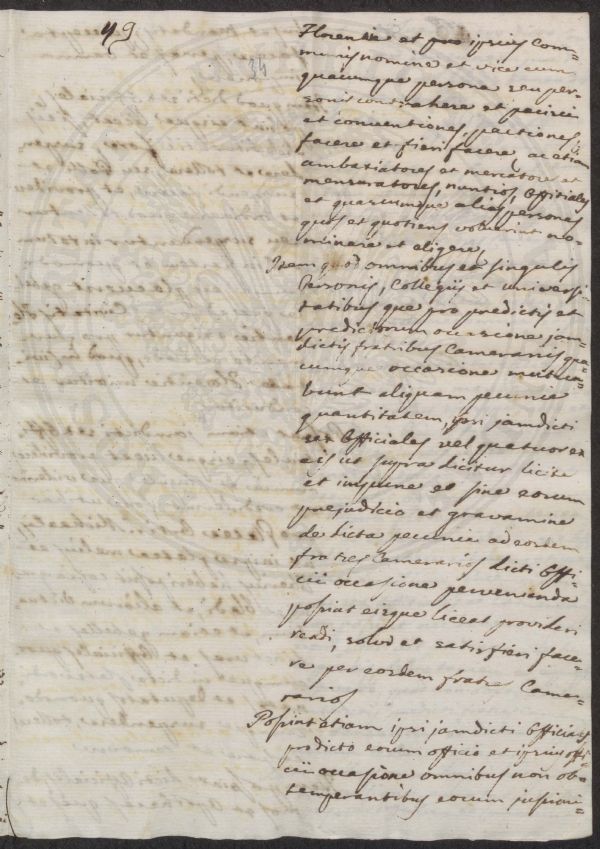 49
34
Florentie et pro ipsius Com-
munis nomine et vice cum
quacunque persona seu per-
sonis contrahere et pacisci
et conventiones, pactiones
facere et fieri facere, ac etiam
ambaxiatores et mercatores et
mensuratores, nuntios, Offitiales
et quascumque alias personas
quos et quotiens voluerint no-
minare et eligere,
Item quod omnibus et singulis
Personis, Collegijs et universi-
tatibus que pro predictis et
predictorum occasione jam-
dictis fratribus Camerarijs qua-
cumque occasione mutua-
bunt aliquam pecunie
quantitatem, ipsi jamdicti
sex Officiales vel quatuor ex
eis ut supra dicitur licite
et impune et sine eorum
prejudicio et gravamine
de dicta pecunia ad eosdem
fratres Camerarios dicti Offi-
cii occasione pervenienda
possint eisque liceat provideri
reddi, solvi et satisfieri face-
re per eosdem fratres Came-
rarios
Possint etiam ipsi jamdicti Officiales
predicto eorum officio et ipsius offi-
cii occasione omnibus non ob-
temperantibus eorum jussioni-